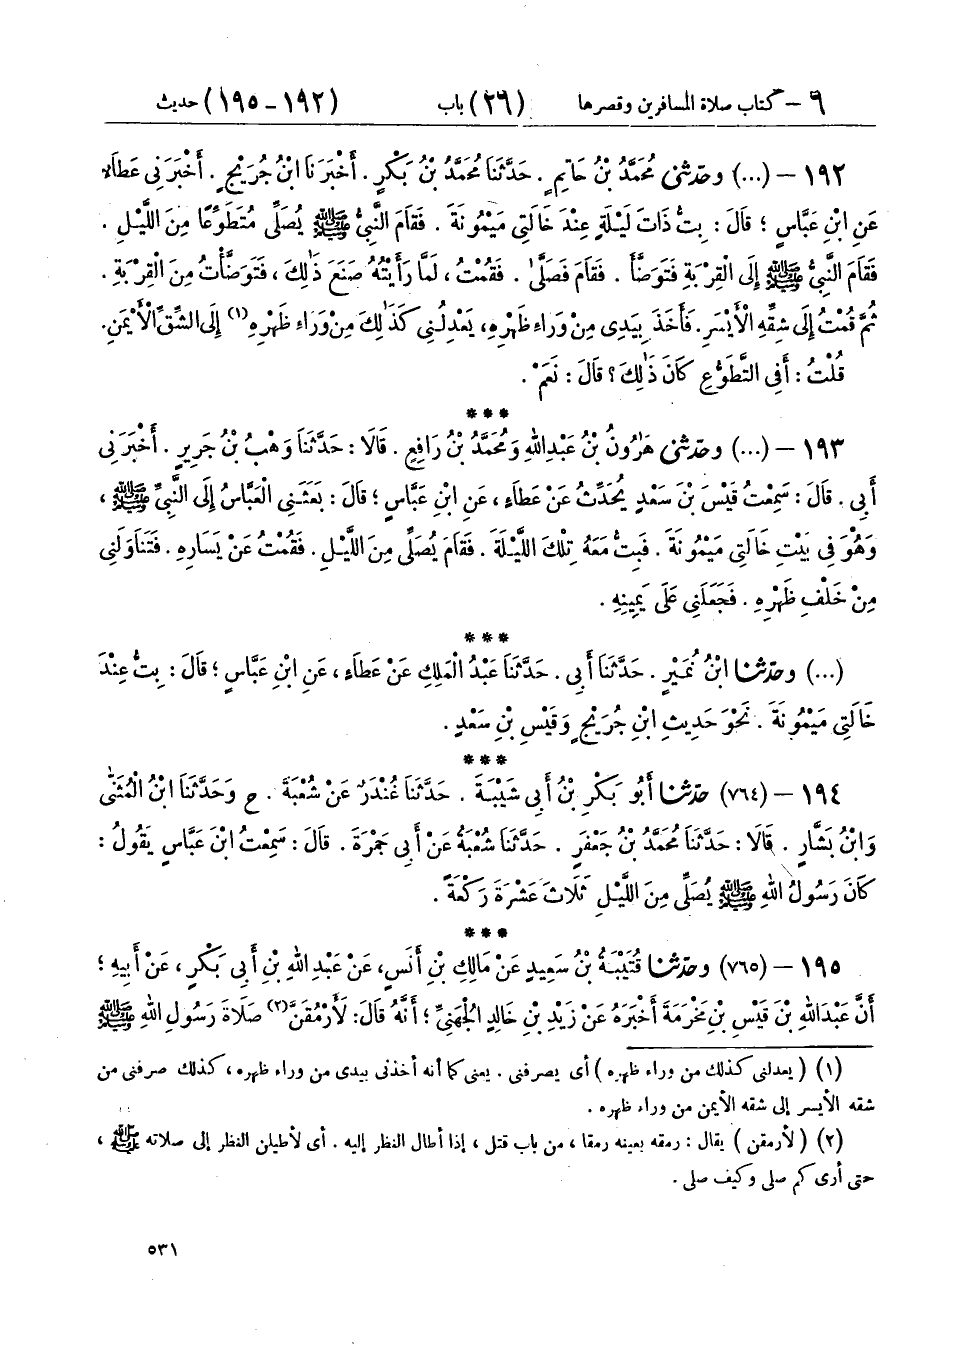 ٦ – كتاب صلاة المسافرين وقصرها (٢٦) باب (١٩٢ – ١٩٥) حديث
١٩٢ – (...) وحَدَّثَنِى مُحَمَّدُ بْنُ حَاتِمٍ . حَدَّثَنَا مُحَمَّدُ بْنُ بَكْرٍ . أَخْبَرَنَا ابْنُ جُرَيْجٍ . أَخْبَرَنِى عَطَاءٌ
عَنِ ابْنِ عَبَّاسٍ ؛ قَالَ : بِتُّ ذَاتَ لَيْلَةٍ عِنْدَ خَالَتِى مَيْمُونَةَ . فَقَامَ النَّبِىُّ ﷺ يُصَلِّى مُتَطَوِّعًا مِنَ اللَّيْلِ .
فَقَامَ النَّبِىُّ ﷺ إِلَى الْقِرْبَةِ فَتَوَضَّأَ . فَقَامَ فَصَلَّىٰ . فَقُمْتُ ، لَمَّا رَأَيْتُهُ صَنَعَ ذَٰلِكَ ، فَتَوَضَّأْتُ مِنَ الْقِرْبَةِ .
ثُمَّ قُمْتُ إِلَى شِقِّهِ الْأَيْسَرِ . فَأَخَذَ بِيَدِى مِنْ وَرَاءِ ظَهْرِهِ، يَعْدِلُنِى كَذَٰلِكَ مِنْ وَرَاءِ ظَهْرِهِ(١) إِلَى الشِّقِّ الْأَيْمَنِ.
قُلْتُ : أَفِى التَّطَوُّعِ كَانَ ذَٰلِكَ ؟ قَالَ : نَعَمْ .
***
١٩٣ – (...) وحَدَّثَنِى هَٰرُونُ بْنُ عَبْدِ اللهِ وَمُحَمَّدُ بْنُ رَافِعٍ . قَالَا : حَدَّثَنَا وَهْبُ بْنُ جَرِيرٍ . أَخْبَرَنِى
أَبِى . قَالَ : سَمِعْتُ قَيْسَ بْنَ سَعْدٍ يُحَدِّثُ عَنْ عَطَاءٍ ، عَنِ ابْنِ عَبَّاسٍ ؛ قَالَ : بَعَثَنِى الْعَبَّاسُ إِلَى النَّبِىِّ ﷺ ،
وَهُوَ فِى بَيْتِ خَالَتِى مَيْمُونَةَ . فَبِتُّ مَعَهُ تِلْكَ اللَّيْلَةَ . فَقَامَ يُصَلِّى مِنَ اللَّيْلِ . فَقُمْتُ عَنْ يَسَارِهِ . فَتَنَاوَلَنِى
مِنْ خَلْفِ ظَهْرِهِ . فَجَعَلَنِى عَلَى يَمِينِهِ .
***
(...) وحَدَّثَنَا ابْنُ نُمَيْرٍ . حَدَّثَنَا أَبِى . حَدَّثَنَا عَبْدُ الْمَلِكِ عَنْ عَطَاءٍ ، عَنِ ابْنِ عَبَّاسٍ ؛ قَالَ : بِتُّ عِنْدَ
خَالَتِى مَيْمُونَةَ . نَحْوَ حَدِيثِ ابْنِ جُرَيْجٍ وَقَيْسِ بْنِ سَعْدٍ .
***
١٩٤ – (٧٦٤) حَدَّثَنَا أَبُو بَكْرِ بْنُ أَبِى شَيْبَةَ . حَدَّثَنَا غُنْدَرٌ عَنْ شُعْبَةَ . ح وَحَدَّثَنَا ابْنُ الْمُثَنَّىٰ
وَابْنُ بَشَّارٍ . قَالَا : حَدَّثَنَا مُحَمَّدُ بْنُ جَعْفَرٍ . حَدَّثَنَا شُعْبَةُ عَنْ أَبِى جَمْرَةَ . قَالَ : سَمِعْتُ ابْنَ عَبَّاسٍ يَقُولُ :
كَانَ رَسُولُ اللهِ ﷺ يُصَلِّى مِنَ اللَّيْلِ ثَلَاثَ عَشْرَةَ رَكْعَةً .
***
١٩٥ – (٧٦٥) وحَدَّثَنَا قُتَيْبَةُ بْنُ سَعِيدٍ عَنْ مَالِكِ بْنِ أَنَسٍ، عَنْ عَبْدِ اللهِ بْنِ أَبِى بَكْرٍ ، عَنْ أَبِيهِ ؛
أَنَّ عَبْدَ اللهِ بْنَ قَيْسِ بْنِ مَخْرَمَةَ أَخْبَرَهُ عَنْ زَيْدِ بْنِ خَالِدٍ الْجُهَنِىِّ ؛ أَنَّهُ قَالَ: لَأَرْمُقَنَّ(٢) صَلَاةَ رَسُولِ اللهِ ﷺ
(١) ( يعدلنى كذلك من وراء ظهره ) أى يصرفنى . يعنى كما أنه أخذنى بيدى من وراء ظهره ، كذلك صرفنى من
شقه الأيسر إلى شقه الأيمن من وراء ظهره .
(٢) ( لأرمقن ) يقال : رمقه بعينه رمقا ، من باب قتل ، إذا أطال النظر إليه . أى لأطيلن النظر إلى صلاته ﷺ ،
حتى أرى كم صلى وكيف صلى .
٥٣١